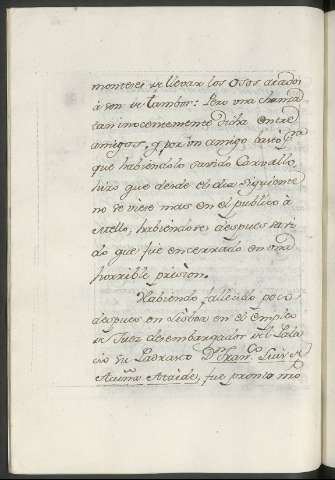 monteses se llevar los Osos atados
à son de tambor: Pero una chanza
tan inocentemente dicha entre
amigos, q. por un amigo
que habiendolo savido Carvallo,
hizo que desde el dia siguiente
no se viese mas en el publico à
Mello, habiendose despues savi-
do que fue encerrado en una
horrible prision.
Habiendo fallecido poco
despues en Lisboa en el empleo
de Juez desembargador del Pala-
cio su Padrasto Dn. Franco. Luis
Ataide, fue pronto